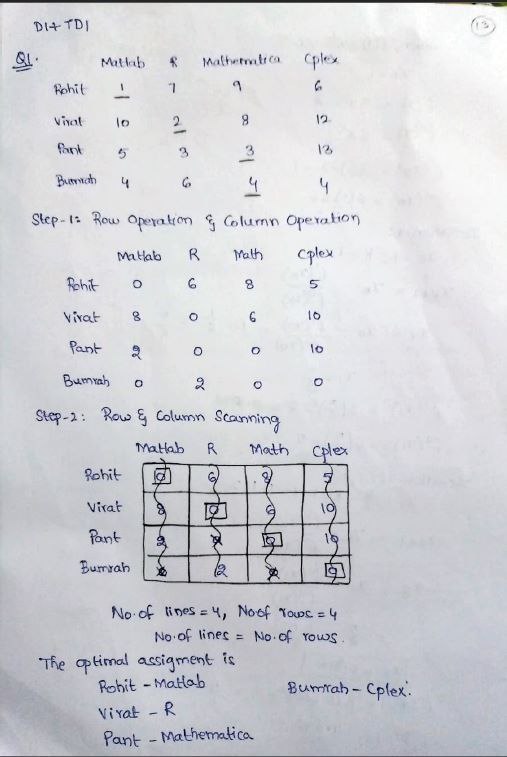 D14 TD1
13
Q1.
Matlab R Mathematica Cplex
Rohit 1 7 9 6
Virat 10 2 8 12
Pant 5 3 3 13
Bumrah 4 6 4 4
Step-1: Row Operation & Column Operation
Matlab R Math Cplex
Rohit 0 6 8 5
Virat 8 0 6 10
Pant 2 0 0 10
Bumrah 0 2 0 0
Step-2: Row & Column Scanning
Matlab R Math Cplex
Rohit 0 6 8 5
Virat 8 0 6 10
Pant 2 0 0 10
Bumrah 0 2 0 0
No. of lines = 4, No of rows = 4
No. of lines = No. of rows.
The optimal assigment is
Rohit - Matlab Bumrah - Cplex.
Virat - R
Pant - Mathematica